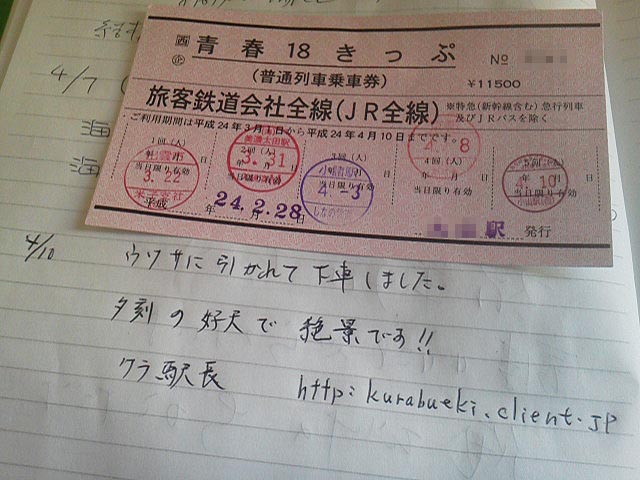 4/7
西
企
青春18きっぷ
No
(普通列車乗車券)
¥11500
旅客鉄道会社全線(JR全線)
※特急(新幹線含む)急行列車
及びJRバスを除く
ご利用期間は平成24年3月1日から平成24年4月10日までです。
1回(人) 2回(人) 3回(人) 4回(人) 5回(人)
3.22 3.31 4.-3 8 10
当日限り有効 当日限り有効 当日限り有効 当日限り有効
美濃太田駅
平成 24.2.28 年 月 日
駅 発行
4/10 ウワサに引かれて下車しました。
夕刻の好天で 絶景です!!
クラ駅長 http:kurabueki.client.jp